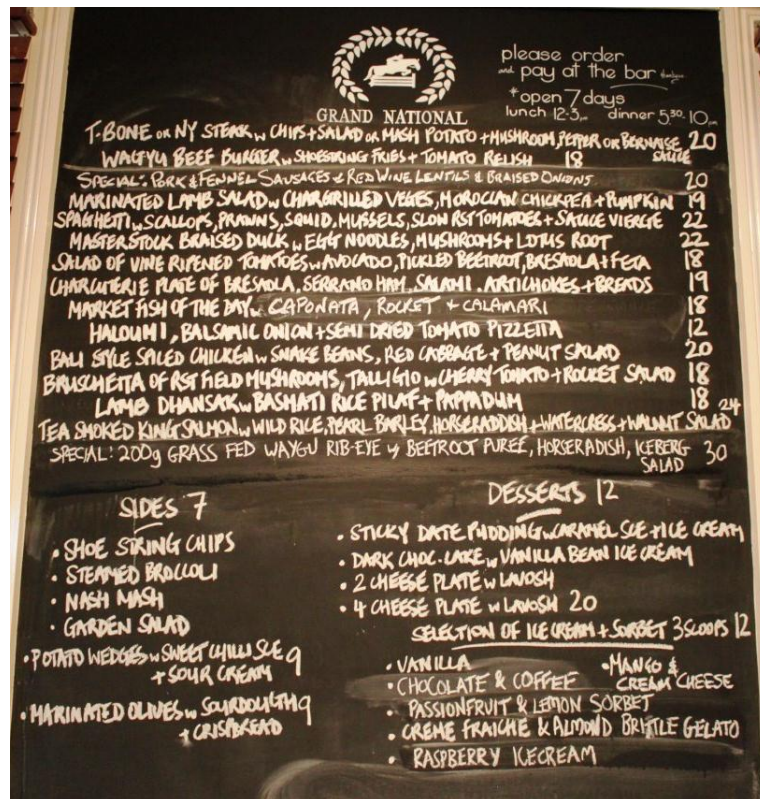 please order
and pay at the bar thankyou
*open 7 days
lunch 12-3pm dinner 5.30-10pm
GRAND NATIONAL
T-BONE OR NY STEAK w CHIPS + SALAD OR MASH POTATO + MUSHROOM, PEPPER OR BERNAISE SAUCE 20
WAGYU BEEF BURGER w SHOESTRING FRIES + TOMATO RELISH 18
SPECIAL: PORK & FENNEL SAUSAGES & RED WINE LENTILS & BRAISED ONIONS 20
MARINATED LAMB SALAD w CHARGRILLED VEGES, MOROCCAN CHICKPEA + PUMPKIN 19
SPAGHETTI w SCALLOPS, PRAWNS, SQUID, MUSSELS, SLOW RST TOMATOES + SAUCE VIERGE 22
MASTERSTOCK BRAISED DUCK w EGG NOODLES, MUSHROOMS + LOTUS ROOT 22
SALAD OF VINE RIPENED TOMATOES w AVOCADO, PICKLED BEETROOT, BRESAOLA + FETA 18
CHARCUTERIE PLATE OF BRESAOLA, SERRANO HAM, SALAMI, ARTICHOKES + BREADS 19
MARKET FISH OF THE DAY w CAPONATA, ROCKET + CALAMARI 18
HALOUMI, BALSAMIC ONION + SEMI DRIED TOMATO PIZZETTA 12
BALI STYLE SPICED CHICKEN w SNAKE BEANS, RED CABBAGE + PEANUT SALAD 20
BRUSCHETTA OF RST FIELD MUSHROOMS, TALLIGIO w CHERRY TOMATO + ROCKET SALAD 18
LAMB DHANSAK w BASMATI RICE PILAF + PAPPADUM 18
TEA SMOKED KING SALMON w WILD RICE, PEARL BARLEY, HORSERADDISH + WATERCRESS + WALNUT SALAD 24
SPECIAL: 200g GRASS FED WAYGU RIB-EYE w BEETROOT PUREE, HORSERADISH, ICEBERG SALAD 30
SIDES 7
• SHOE STRING CHIPS
• STEAMED BROCCOLI
• NASH MASH
• GARDEN SALAD
• POTATO WEDGES w SWEET CHILLI SCE + SOUR CREAM 9
• MARINATED OLIVES w SOURDOUGH + CRISPBREAD 9
DESSERTS 12
• STICKY DATE PUDDING w CARAMEL SCE + ICE CREAM
• DARK CHOC. CAKE w VANILLA BEAN ICE CREAM
• 2 CHEESE PLATE w LAVOSH
• 4 CHEESE PLATE w LAVOSH 20
SELECTION OF ICE CREAM + SORBET 3 SCOOPS 12
• VANILLA
• CHOCOLATE & COFFEE
• MANGO & CREAM CHEESE
• PASSIONFRUIT & LEMON SORBET
• CREME FRAICHE & ALMOND BRITTLE GELATO
• RASPBERRY ICECREAM